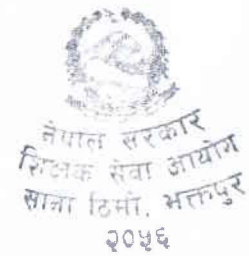 नेपाल सरकार
शिक्षक सेवा आयोग
सानो ठिमी, भक्तपुर
२०५६